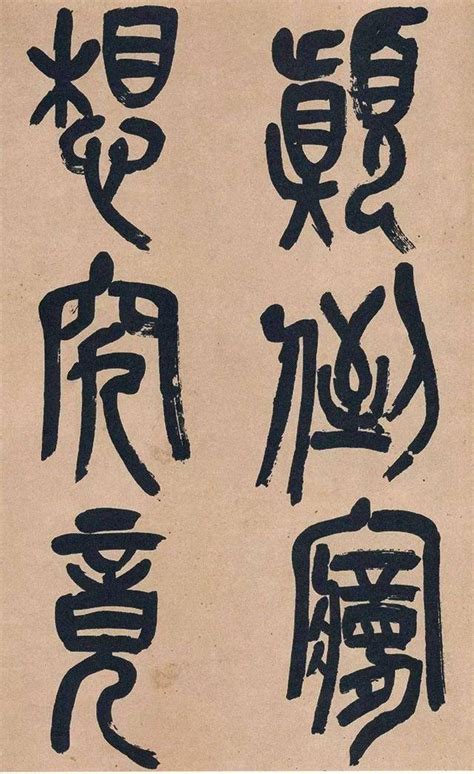 顛倒㝱
想究竟